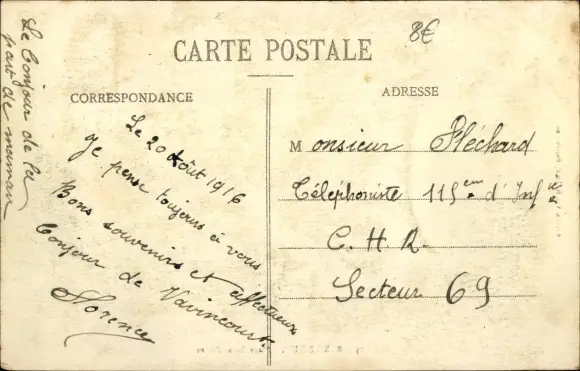 8€
CARTE POSTALE
CORRESPONDANCE
ADRESSE
Le Bonjour de la
part de maman
Le 20 Août 1916
Je pense toujours à vous
Bons souvenirs et affectueux
bonjour de Vavincourt.
Florence
Monsieur Fléchard
Téléphoniste 115em d'Infie
C. H. R.
Secteur 69